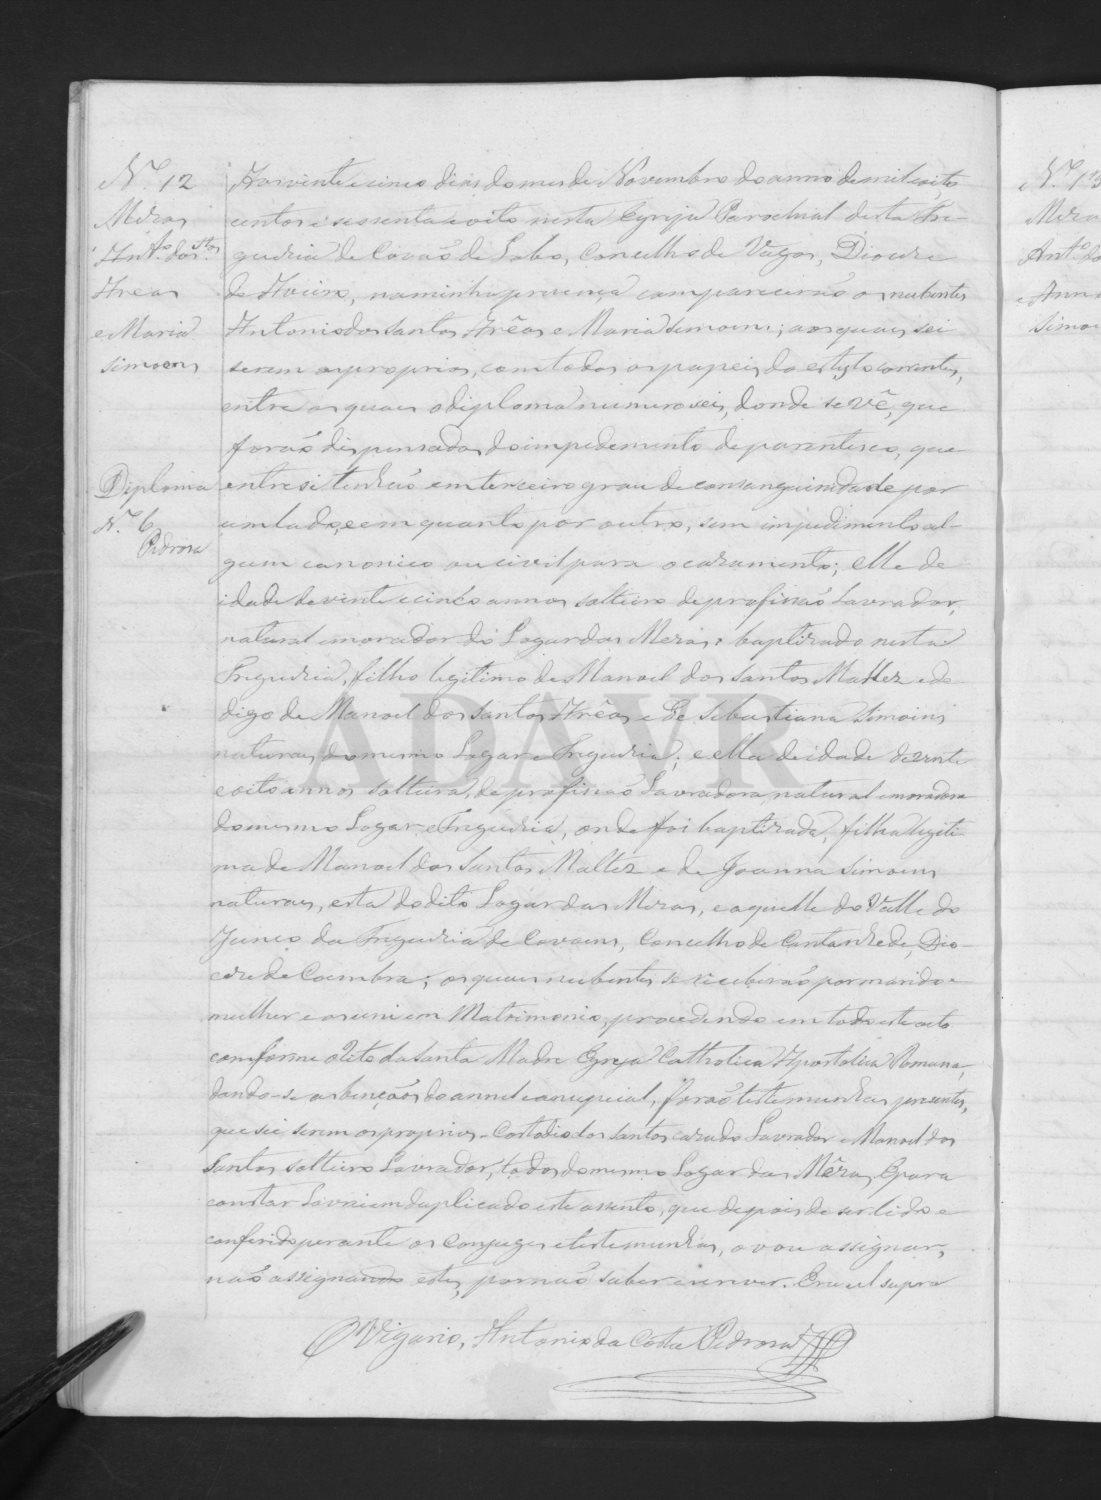 N.º 12
Meras
Ant.º dos St.os
Arêas
e Maria
Simoens
Diploma
N.º 6
Pedrosa
Aos vinte e cinco dias do mes de Novembro do anno de mil oito
centos e sessenta e oito nesta Egreja Parochial desta Fre-
guesia de Covão de Lobo, Concelho de Vagos, Diocese
de Aveiro, na minha presença comparecerão os nubentes
Antonio dos Santos Arêas e Maria Simoens; aos quaes sei
serem os proprios, com todos os papeis do estylo correntes,
entre os quaes o diploma numero seis, donde se vê, que
forão dispensados do impedemento de parentesco, que
entre si tenhão em terceiro grau de consanguinidade por
um lado, e em quarto por outro, sem impedimento al-
gum canonico ou civil para o casamento; elle de
idade de vinte e cinco annos solteiro de profissão Lavrador,
natural e morador do Logar das Meras e baptizado nesta
Freguesia, filho legitimo de Manoel dos Santos Maltez e do
digo de Manoel dos Santos Arêas e de Sebastiana Simoins
naturaes do mesmo Logar e Freguesia; e ella de idade de vinte
e oito annos solteira, de profissão Lavradora, natural e moradora
do mesmo Logar e Freguesia, onde foi baptizada, filha legiti
ma de Manoel dos Santos Maltez e de Joanna Simoens
naturaes, esta do dito Logar das Meras, e aquelle do Valle do
Junco da Freguesia de Covoens, Concelho de Cantanhede, Dio-
cese de Coimbra; os quaes nubentes se receberão por marido e
mulher e os uni em Matrimonio, procedendo em todo este acto
conforme o Rito da Santa Madre Egreja Catholica Apostolica Romana,
dando-se as bençãos do annel e a nupcial, forão testemunhas presentes,
que sei serem os proprios - Costodio dos Santos casado Lavrador e Manoel dos
Santos solteiro Lavrador, todos do mesmo Logar das Mêras, E para
constar lavrei em duplicado este assento, que depois de ser lido e
conferido perante os conjuges e testemunhas, o vou assignar,
não assignando estes, por não saber escrever. Era ut supra
O Vigario, Antonio da Costa Pedrosa
N.º 13
Ant.º do
e Anna
ADAVR